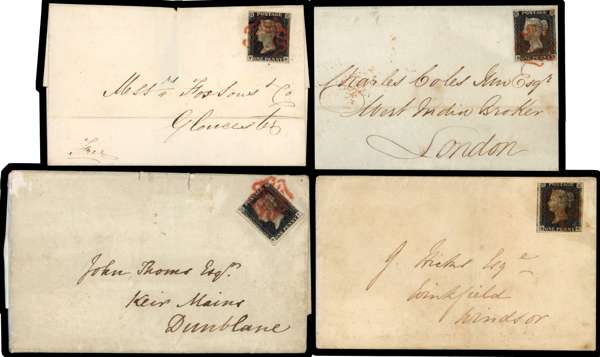 POSTAGE
ONE PENNY
Messrs Fox Sons & Co
Gloucester
Free
POSTAGE
ONE PENNY
Charles Coles Junr Esqr
West India Broker
London
POSTAGE
ONE PENNY
John Thoms Esqr.
Keir Mains
Dunblane
POSTAGE
ONE PENNY
J. Esqre
Winkfield
Windsor